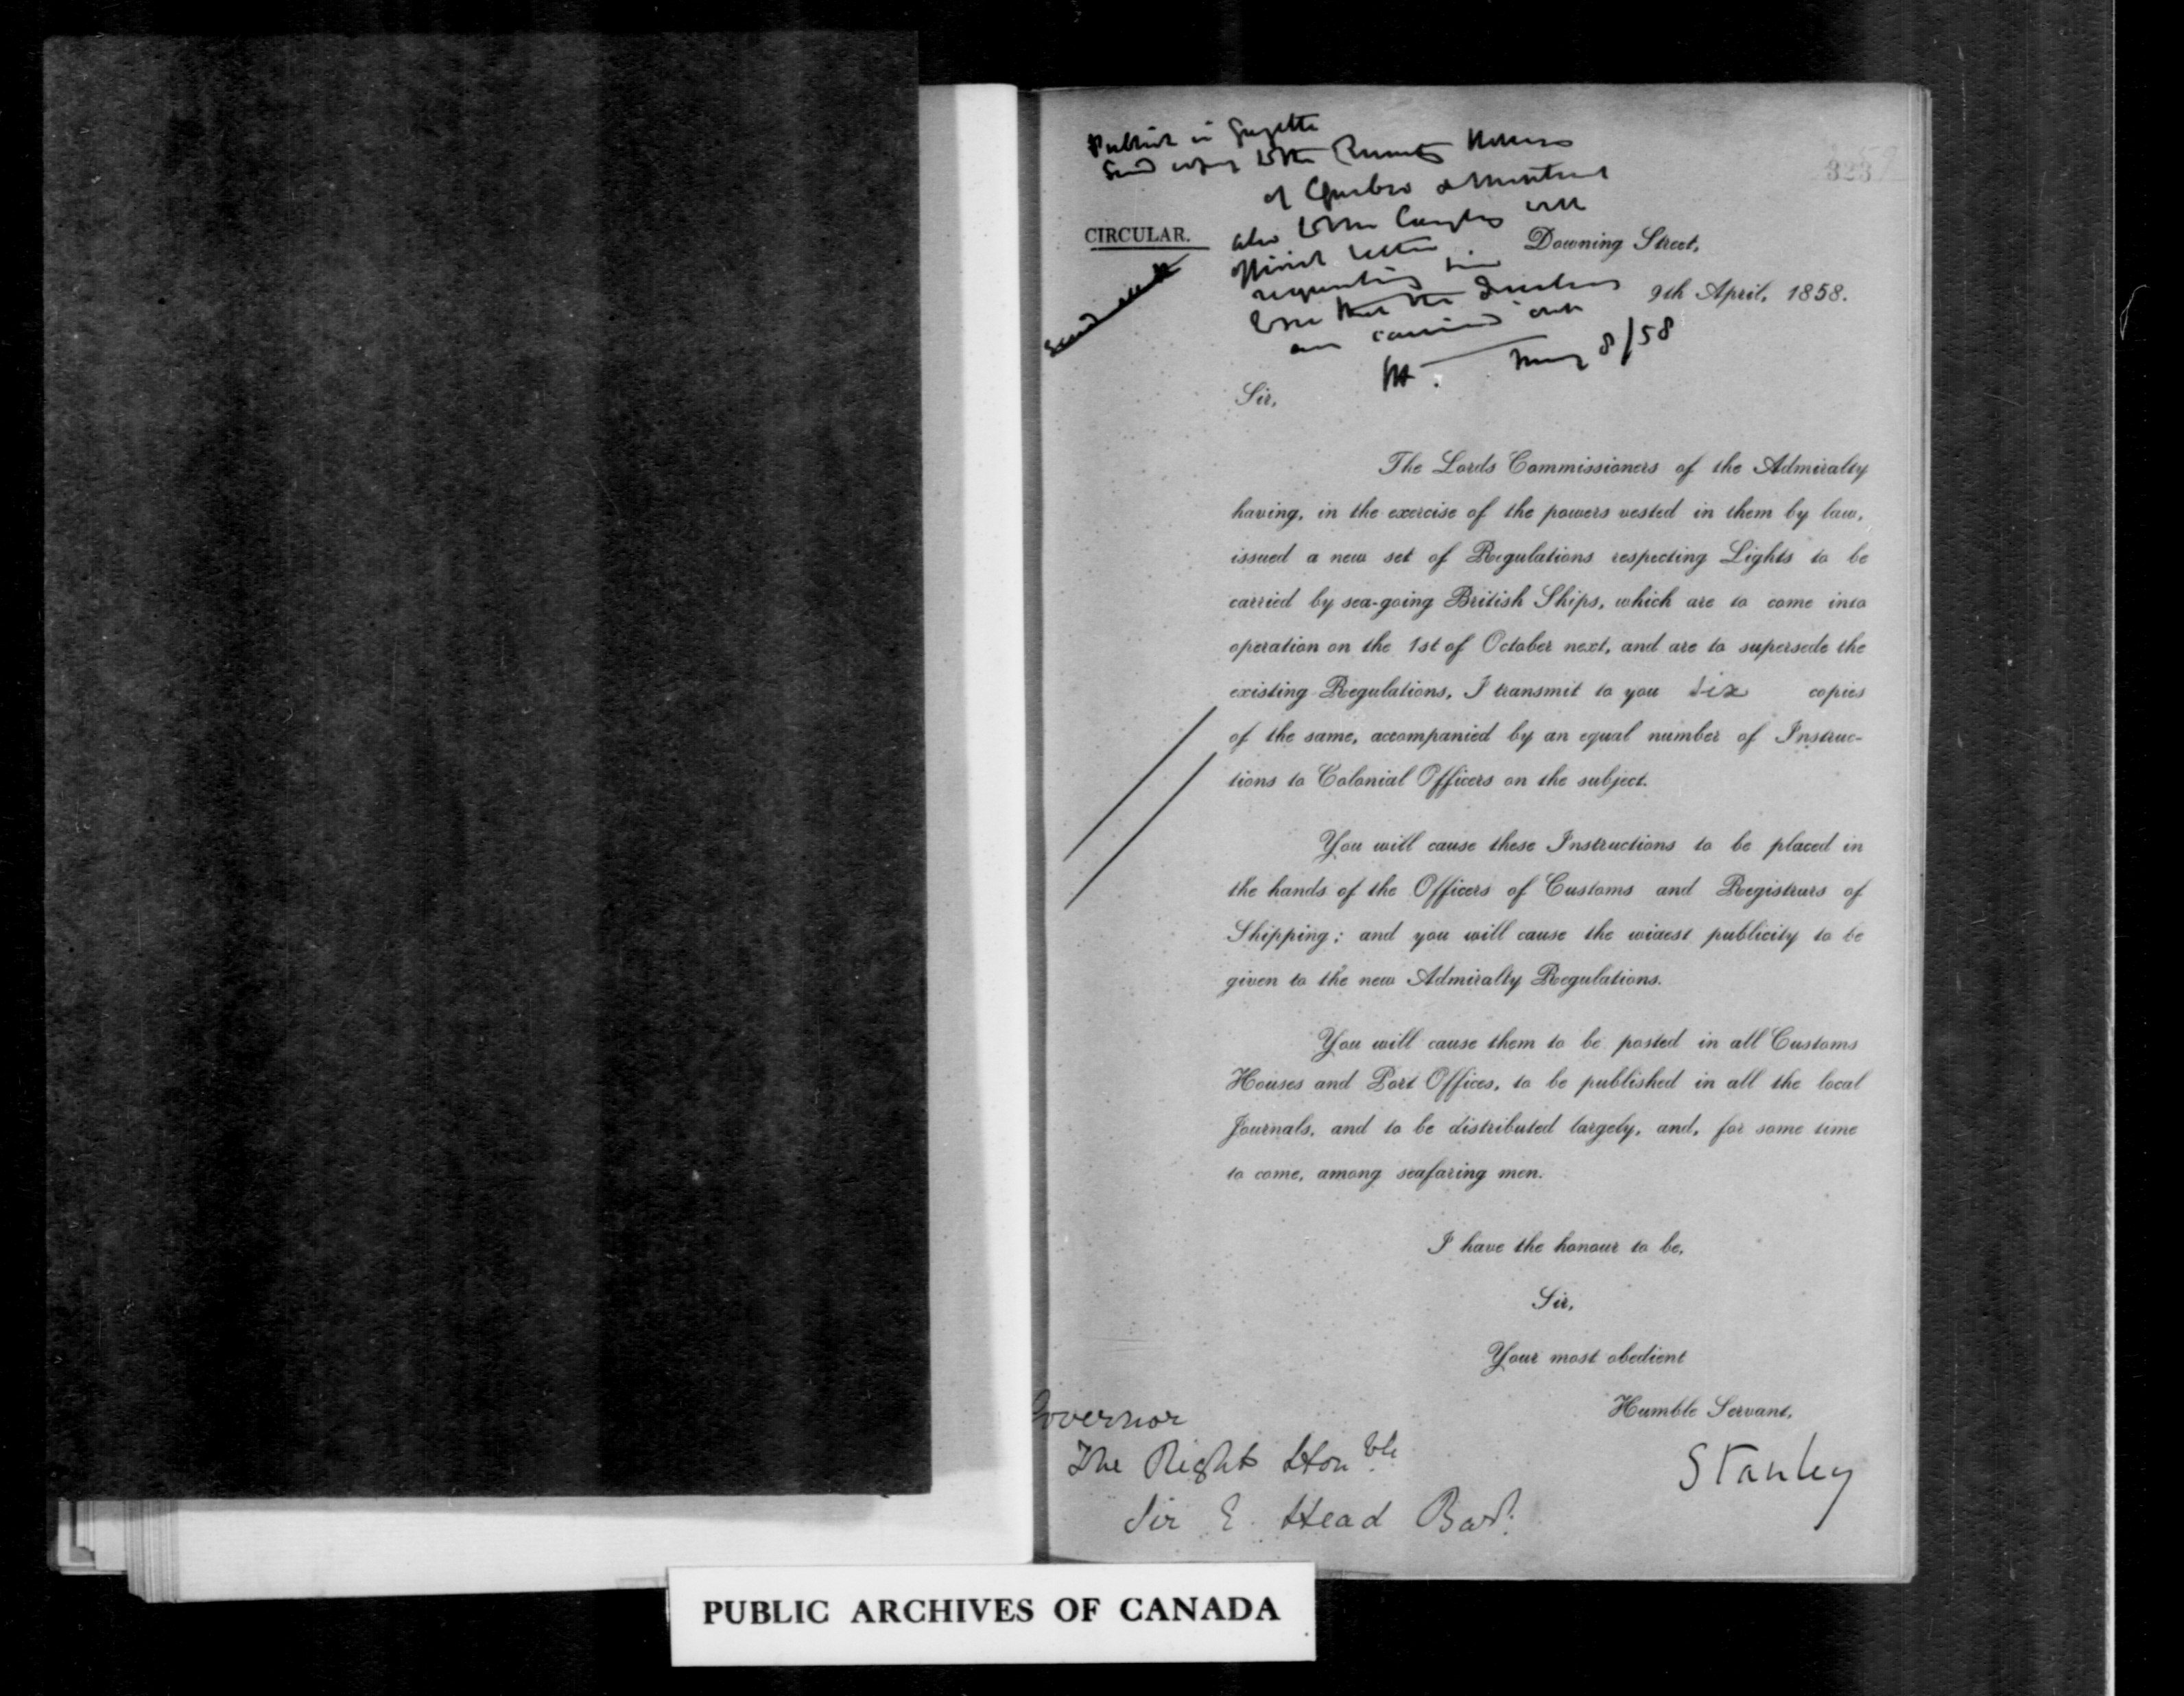 Publish in Gazette
Send copies to the Trinity Houses
of Quebec & Montreal
also to the
official letter
requesting him
to see that the
are carried out
May 8/58
323
CIRCULAR.
Downing Street,
9th April, 1858.
Sir,
The Lords Commissioners of the Admiralty
having, in the exercise of the powers vested in them by law,
issued a new set of Regulations respecting Lights to be
carried by sea-going British Ships, which are to come into
operation on the 1st of October next, and are to supersede the
existing Regulations, I transmit to you six copies
of the same, accompanied by an equal number of Instruc-
tions to Colonial Officers on the subject.
You will cause these Instructions to be placed in
the hands of the Officers of Customs and Registrars of
Shipping; and you will cause the widest publicity to be
given to the new Admiralty Regulations.
You will cause them to be posted in all Customs
Houses and Port Offices, to be published in all the local
Journals, and to be distributed largely, and, for some time
to come, among seafaring men.
I have the honour to be,
Sir,
Your most obedient
Humble Servant,
Stanley
Governor
The Right Honble
Sir E. Head Bart.
PUBLIC ARCHIVES OF CANADA